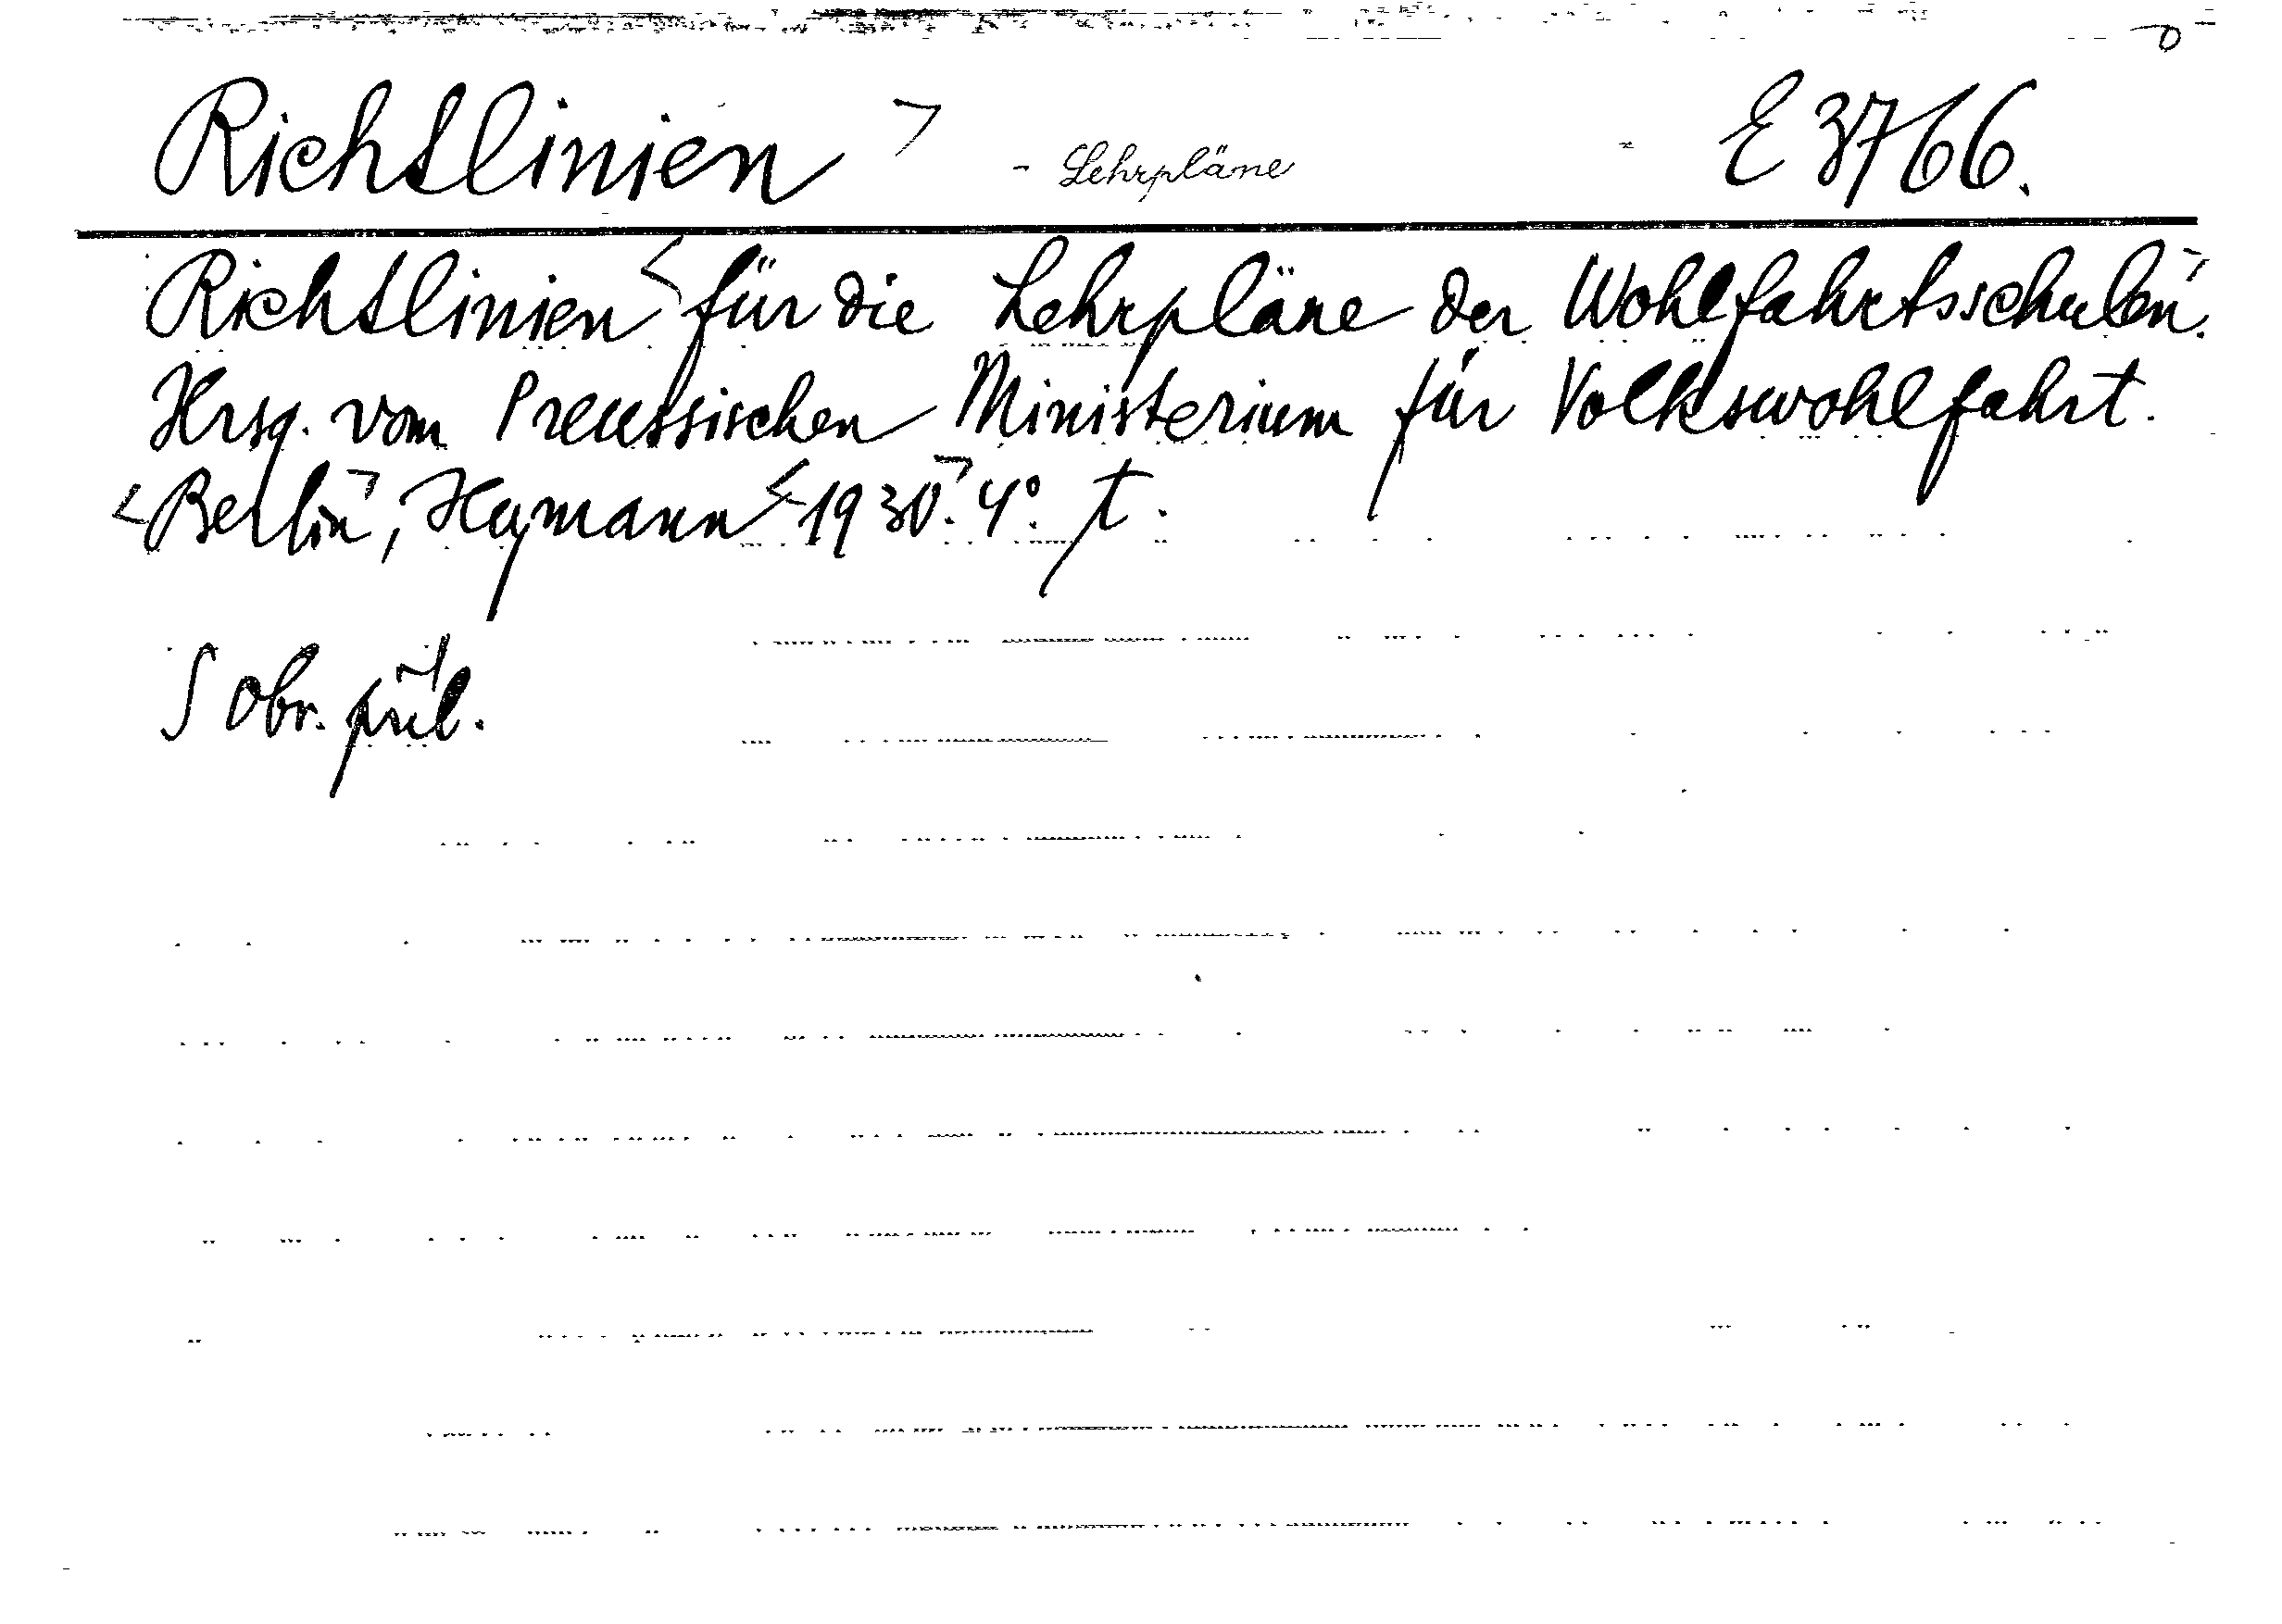 Richtlinien - Lehrpläne E 3766.
Richtlinien für die Lehrpläne der Wohlfahrtsschulen.
Hrsg. vom Preussischen Ministerium für Volkswohlfahrt.
Berlin, Heymann 1930. 4°. t.
S obr. příl.